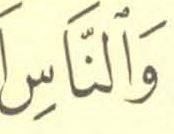 وَٱلنَّاسِ